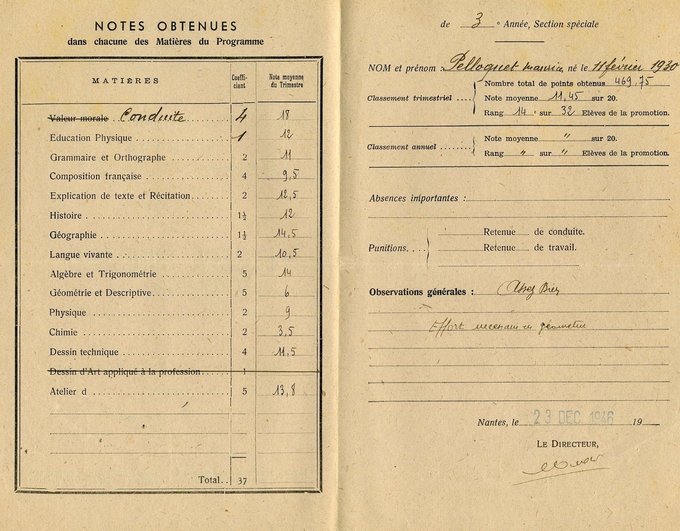 NOTES OBTENUES
dans chacune des Matières du Programme
MATIÈRES Coeffi-ciant Note moyenne du Trimestre
Valeur morale Conduite 4 18
Education Physique 1 12
Grammaire et Orthographe 2 11
Composition française 4 9,5
Explication de texte et Récitation 2 12,5
Histoire 1½ 12
Géographie 1½ 14,5
Langue vivante 2 10,5
Algèbre et Trigonométrie 5 14
Géométrie et Descriptive 5 6
Physique 2 9
Chimie 2 3,5
Dessin technique 4 11,5
Dessin d'Art appliqué à la profession 1
Atelier d 5 13,8
Total 37
de 3 Année, Section spéciale
NOM et prénom : Pelloquet Maurice, né le 11 février 1930
Nombre total de points obtenus 469,75
Classement trimestriel Note moyenne 11,45 sur 20.
Rang 14 sur 32 Elèves de la promotion.
Classement annuel Note moyenne " sur 20.
Rang " sur " Elèves de la promotion.
Absences importantes :
Retenue de conduite.
Punitions.
Retenue de travail.
Observations générales : Assez Bien
Effort nécessaire en géométrie
Nantes, le 23 DEC 1946 19
LE DIRECTEUR,